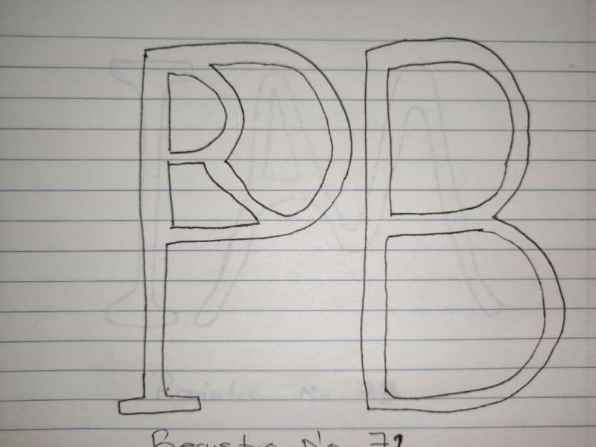 PRB
Registro No